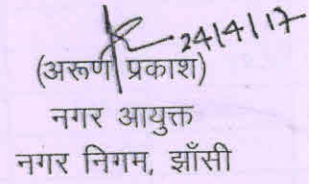 24/4/17
(अरूण प्रकाश)
नगर आयुक्त
नगर निगम, झाँसी